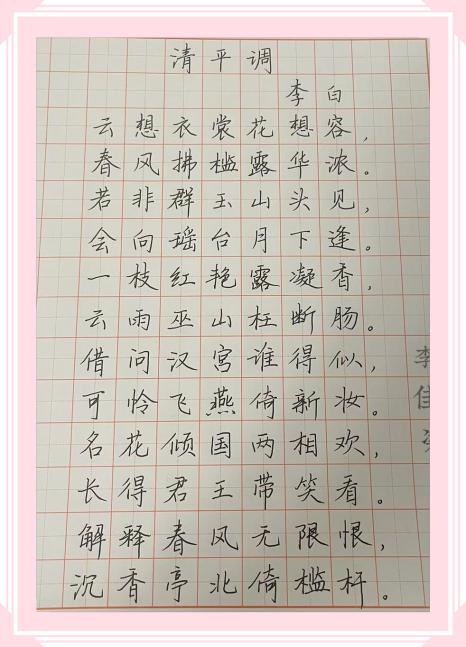 清平调
李白
云想衣裳花想容，
春风拂槛露华浓。
若非群玉山头见，
会向瑶台月下逢。
一枝红艳露凝香，
云雨巫山枉断肠。
借问汉宫谁得似，
可怜飞燕倚新妆。
名花倾国两相欢，
长得君王带笑看。
解释春风无限恨，
沉香亭北倚槛杆。
李佳